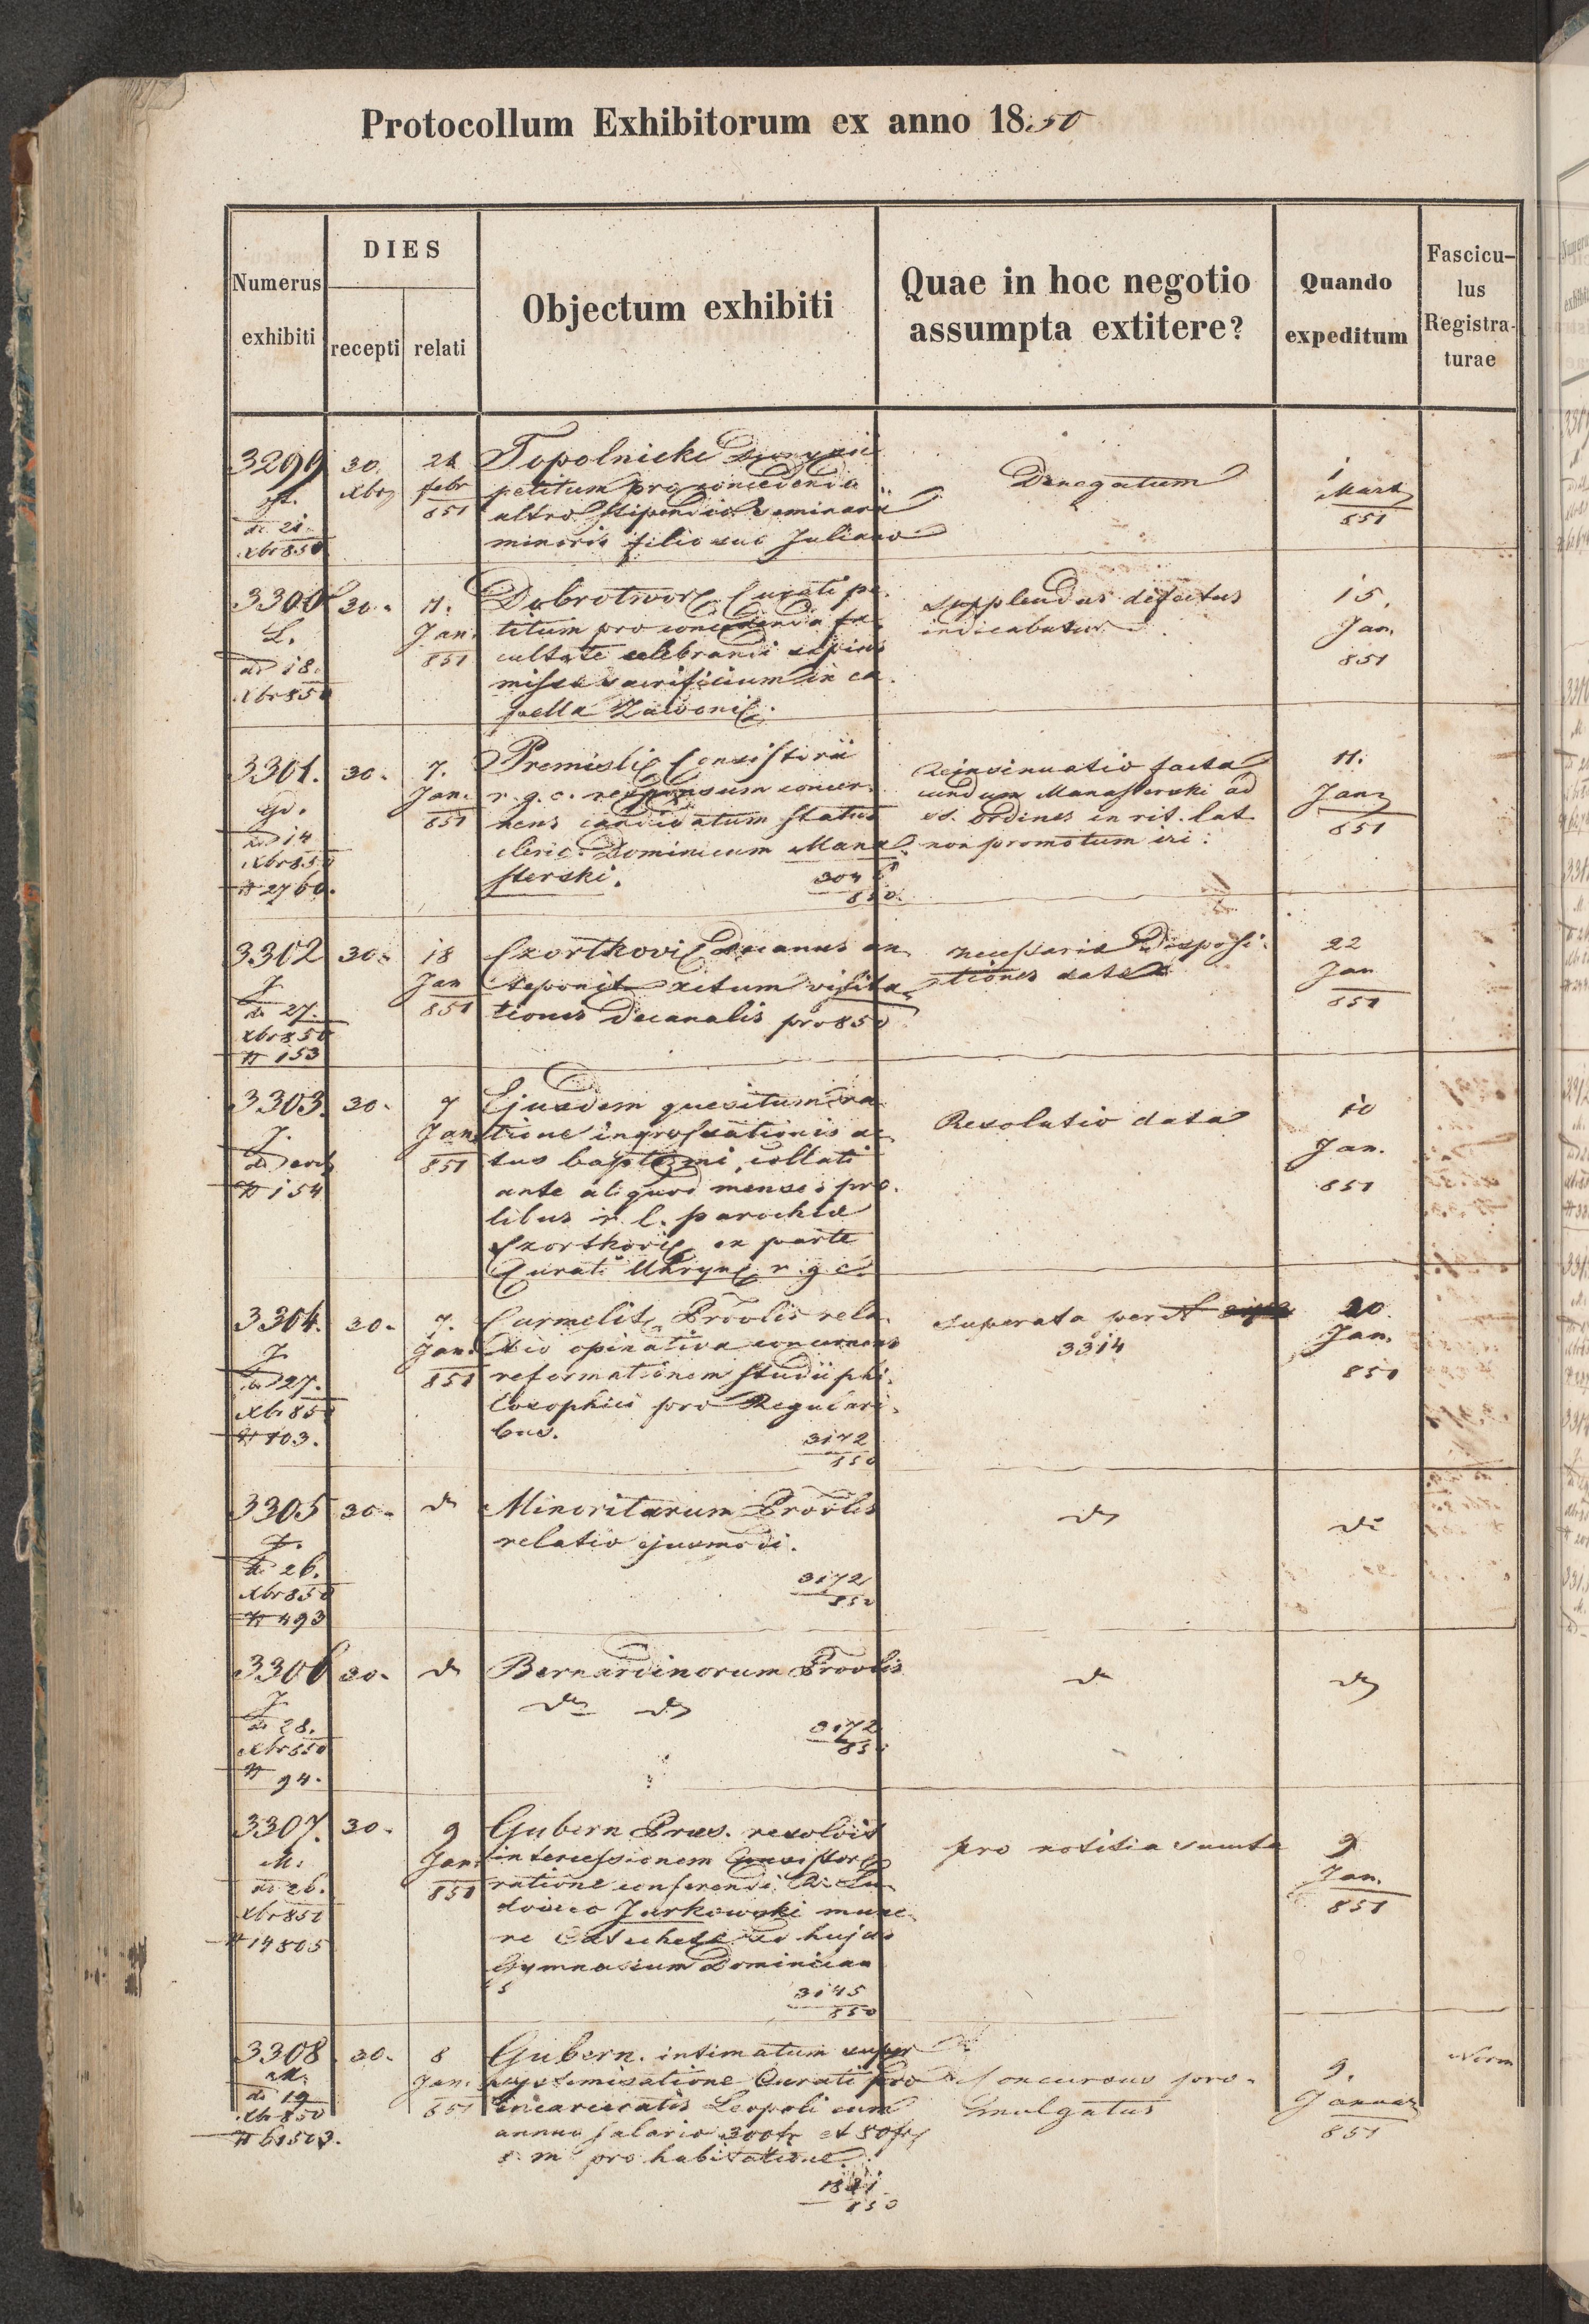 Protocollum Exhibitorum ex anno 1850
Numerus exhibiti
DIES
recepti
relati
Objectum exhibiti
Quae in hoc negotio assumpta extitere?
Quando expeditum
Fascicu-
lus
Registra-
turae
3299
30
Xbr
febr
851
Topolnicki
petitum pro concedendo
altero stipendio Seminarii
minoris filio suo Juliano
Denegatum
1
Mart
851
de 21
Xbr 850
3300
30.
11.
Jan.
851
Dobrotwor. Curati pe-
titum pro concedenda fa-
cultate celebrandi sæpius
missæ sacrificium in ca-
pella
supplendus defectus
indicabatur
15.
Jan.
851
L.
dd 18.
Xbr 850
3301.
30.
7.
Jan.
851
Premisli Consistorii
r. g. c. responsum concer-
nens candidatum status
cleric. Dominicum Mana-
sterski.
850.
Reinsinuatio facta
eundum Manasterski ad
ss. Ordines in rit. lat.
non promotum iri.
11.
Jan
851
dd 14
Xbr 850
N 2760.
3302
30.
18
Jan
851
Czortkovi Decanus an-
teponit actum visita-
tionis Decanalis pro 850
necessariæ Disposi-
tiones datæ
22
Jan
851
J
de 27.
Xbr 850
N 153
3303.
30.
7
Jan
851
Ejusdem quesitum ra-
tione ingrossationis ac-
tus baptismi, collati
ante aliquod menses pro-
libus r. l. parochiæ
Czortkovi ex parte
Curati Uhryn r. g. c.
Resolutio data
10
Jan.
851
J.
N 154
3304.
30.
7.
Jan.
851
Carmelit. Provlis rela-
tio opinativa concernens
reformationem studii phi-
losophici pro Regulari-
bus.
3172
850
superata per N
3314
20
Jan.
851
J
dd 27.
Xbr 850
N 103.
3305
30.
do
Minoritarum Provlis
relatio ejusmodi.
3172
850
do
do
J.
de 26.
Xbr 850
N 493
3306
30.
do
Bernardinorum Provlis
do do
3172
850
do
do
J
de 28.
Xbr 850
N 94.
3307.
30.
9
Jan.
851
Gubern Præs. resolvit
intercessionem Consistor
ratione conferendi R. Lu-
dovico Jurkowski mune-
re Catechetæ ad hujas
Gymnasium Dominican
3145
850
pro notitia sumta
9
Jan.
851
M.
de 26.
N 14805
3308
30.
8
Jan.
851
Gubern. intimatum super
systemisatione Curati pro
incarceratis Leopoli cum
annuo salario 300 fr et 50 fr
pro habitatione.
850
Concursus pro-
mulgatus
9.
Januar
851
Norm
M.
de 19
Xbr 850